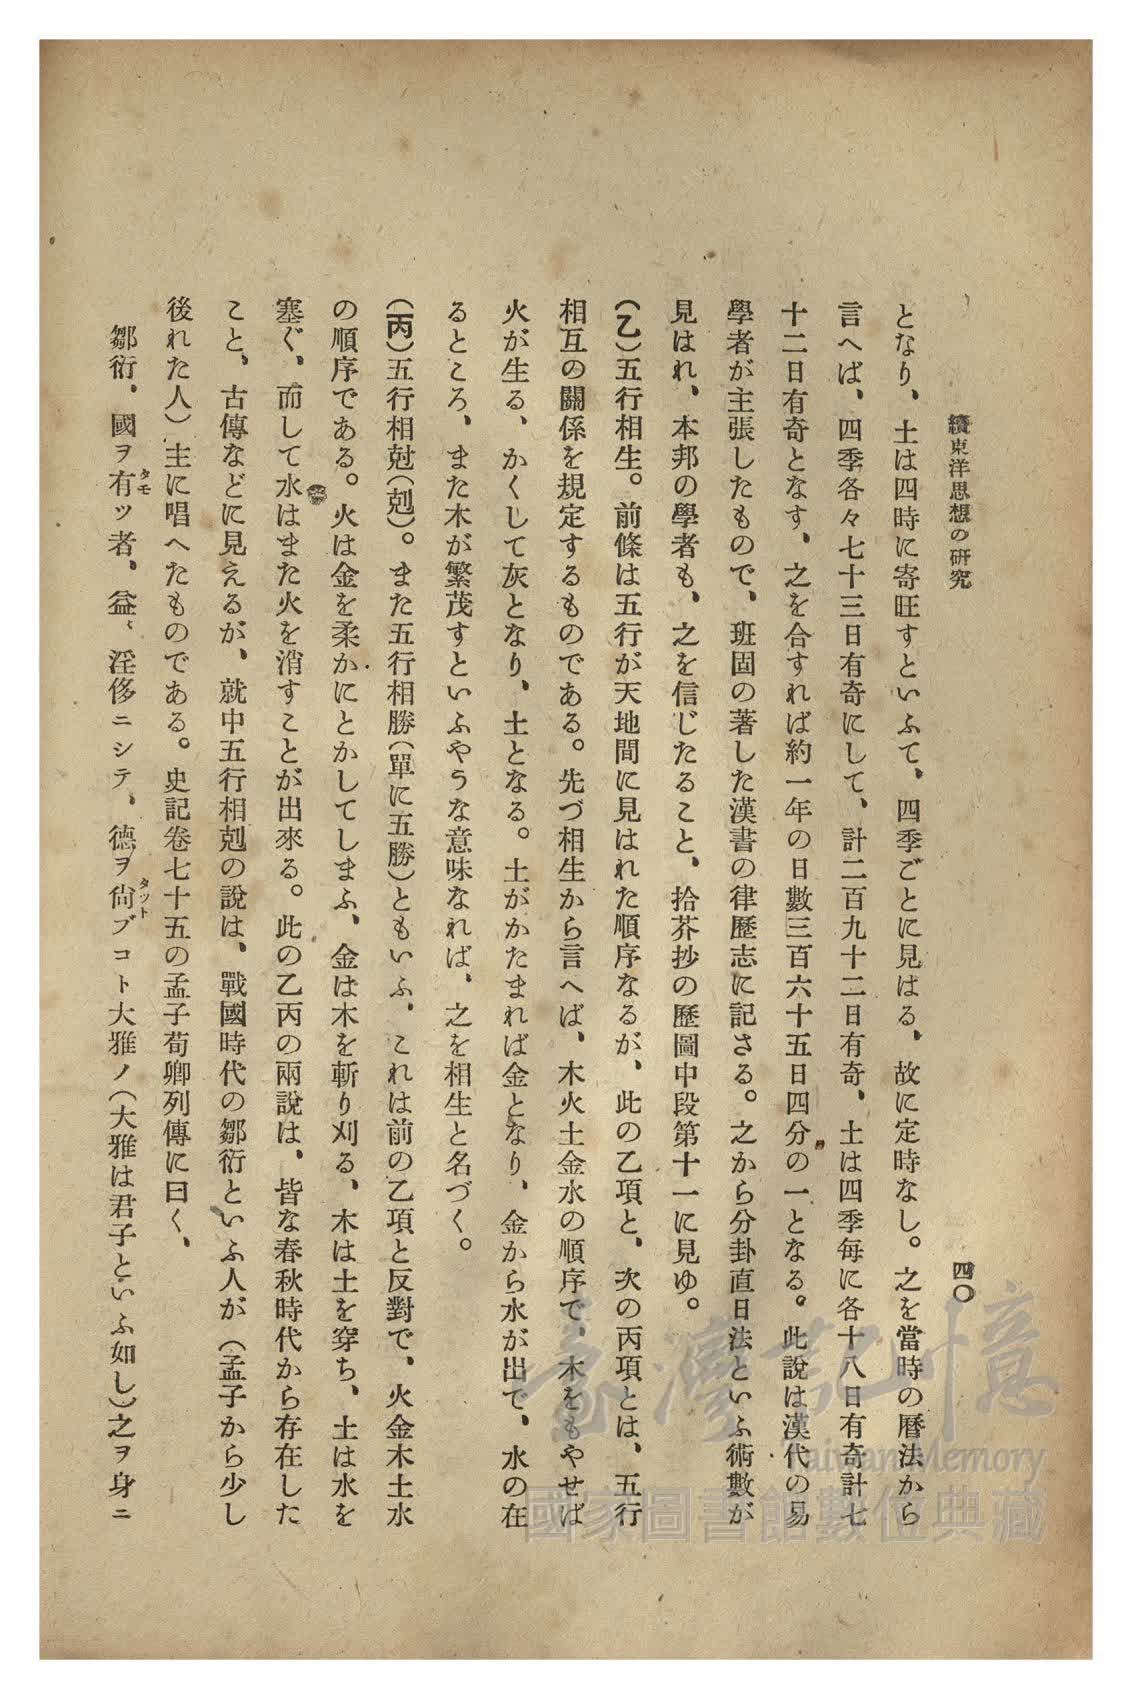 續東洋思想の研究
四〇
となり、土は四時に寄旺すといふて、四季ごとに見はる、故に定時なし。之を當時の曆法から
言へば、四季各々七十三日有奇にして、計二百九十二日有奇、土は四季每に各十八日有奇計七
十二日有奇となす、之を合すれば約一年の日數三百六十五日四分の一となる。此說は漢代の易
學者が主張したもので、班固の著した漢書の律歷志に記さる。之から分卦直日法といふ術數が
見はれ、本邦の學者も、之を信じたること、拾芥抄の歷圖中段第十一に見ゆ。
(乙)五行相生。前條は五行が天地間に見はれた順序なるが、此の乙項と、次の丙項とは、五行
相互の關係を規定するものである。先づ相生から言へば、木火土金水の順序で、木をもやせば
火が生る、かくして灰となり、土となる。土がかたまれば金となり、金から水が出で、水の在
るところ、また木が繁茂すといふやうな意味なれば、之を相生と名づく。
(丙)五行相尅(剋)。また五行相勝(單に五勝)ともいふ、これは前の乙項と反對で、火金木土水
の順序である。火は金を柔かにとかしてしまふ、金は木を斬り刈る、木は土を穿ち、土は水を
塞ぐ、而して水はまた火を消すことが出來る。此の乙丙の兩說は、皆な春秋時代から存在した
こと、古傳などに見えるが、就中五行相剋の說は、戰國時代の鄒衍といふ人が(孟子から少し
後れた人)主に唱へたものである。史記卷七十五の孟子荀卿列傳に曰く、
鄒衍、國ヲ有ツ者、益〻淫侈ニシテ、德ヲ尙ブコト大雅ノ(大雅は君子といふ如し)之ヲ身ニ
タモ
タット
臺灣記憶
Taiwan Memory
國家圖書館數位典藏